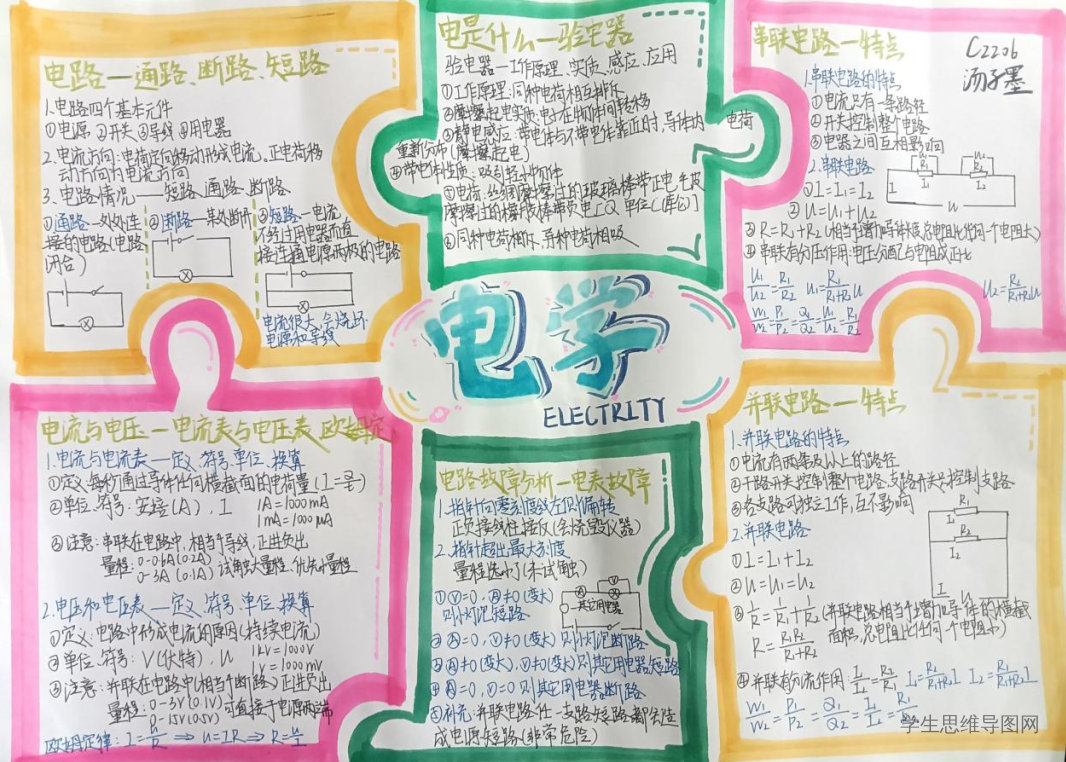 电路—通路、断路、短路
1.电路四个基本元件
①电源 ②开关 ③导线 ④用电器
2.电流方向:电荷定向移动形成电流、正电荷移
动方向为电流方向
3.电路情况——短路、通路、断路
①通路—处处连
接的电路(电路
闭合)
②断路—某处断开
③短路—电流
不经过用电器而直
接连通电源两极的电路
电流很大,会烧坏
电源和导线
电是什么—验电器
验电器—工作原理、实质、感应、应用
①工作原理:同种电荷相互排斥
②摩擦起电实质:电子在物体间转移
③静电感应:带电体与不带电体靠近时,导体内 电荷
重新分布(摩擦起电)
④带电体性质:吸引轻小物体
⑤电荷:丝绸摩擦过的玻璃棒带正电,毛皮
摩擦过的橡胶棒带负电[Q 单位C(库仑)]
⑥同种电荷相斥、异种电荷相吸
串联电路—特点
C2206
汤子墨
1.串联电路的特点
①电流只有一条路径
②开关控制整个电路
③电器之间互相影响
2.串联电路
①I=I₁=I₂
②U=U₁+U₂
③R=R₁+R₂(相当于增加导体长度,总电阻比任何一个电阻大)
④串联有分压作用:电压分配与电阻成正比
U₁/U₂=R₁/R₂ U₁=R₁/(R₁+R₂)U U₂=R₂/(R₁+R₂)U
W₁/W₂=P₁/P₂=Q₁/Q₂=U₁/U₂=R₁/R₂
电学
ELECTRITY
电流与电压—电流表与电压表、欧姆定
1.电流与电流表—定义、符号、单位、换算
①定义:每秒通过导体任何横截面的电荷量(I=Q/t)
②单位、符号:安培(A),I 1A=1000mA
1mA=1000μA
③注意:串联在电路中,相当于导线,正进负出
量程:0-0.6A(0.02A)
0-3A(0.1A) 试触大量程,优先小量程
2.电压和电压表—定义、符号、单位、换算
①定义:电路中形成电流的原因(持续电流)
②单位、符号:V(伏特),U 1kV=1000V
1V=1000mV
③注意:并联在电路中(相当于断路)正进负出
量程:0-3V(0.1V)
0-15V(0.5V) 可直接于电源两端
欧姆定律:I=U/R⇒U=IR⇒R=U/I
电路故障分析—电表故障
1.指针向零刻度线左侧偏转
正负接线柱接反(会烧毁仪器)
2.指针超出最大刻度
量程选小了(未试触)
其它用电器
①Ⓥ=0,Ⓐ≠0(变大)
则小灯泡短路
②Ⓐ=0,Ⓥ≠0(变大)则小灯泡断路
③Ⓐ≠0(变大),Ⓥ≠0(变大)则其它用电器短路
④Ⓐ=0,Ⓥ=0则其它用电器断路
⑤补充:并联电路任一支路短路都会造
成电源短路(非常危险)
并联电路—特点
1.并联电路的特点
①电流有两条及以上的路径
②干路开关控制整个电路,支路开关只控制支路
③各支路可独立工作,互不影响
2.并联电路
①I=I₁+I₂
②U=U₁=U₂
③1/R=1/R₁+1/R₂(并联电路相当于增加导体的横截
面积,总电阻比任何一个电阻小)
R=R₁R₂/(R₁+R₂)
④并联有分流作用:I₁/I₂=R₂/R₁ I₁=R₂/(R₁+R₂)I I₂=R₁/(R₁+R₂)I
W₁/W₂=P₁/P₂=Q₁/Q₂=I₁/I₂=R₂/R₁
学生思维导图网